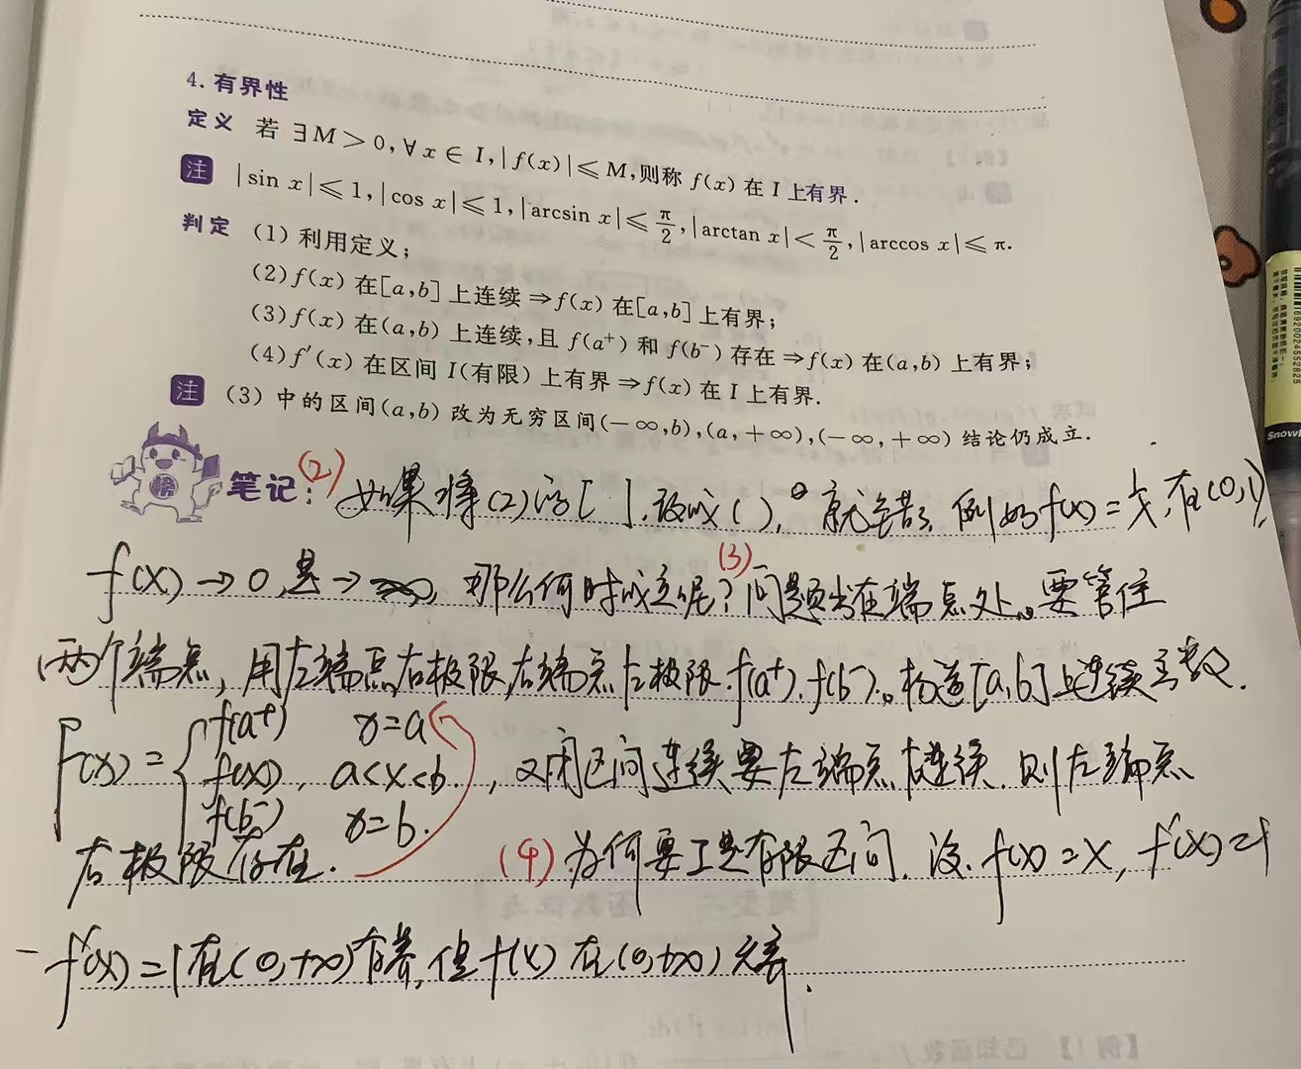 4. 有界性
定义 若 ∃M＞0,∀x∈I,|f(x)|≤M,则称 f(x) 在 I 上有界.
注 |sin x|≤1,|cos x|≤1,|arcsin x|≤π/2,|arctan x|<π/2,|arccos x|≤π.
判定 (1) 利用定义;
(2) f(x) 在[a,b] 上连续⇒f(x) 在[a,b] 上有界;
(3) f(x) 在(a,b) 上连续,且 f(a⁺) 和 f(b⁻) 存在⇒f(x) 在(a,b) 上有界;
(4) f′(x) 在区间 I(有限) 上有界⇒f(x) 在 I 上有界.
注 (3) 中的区间(a,b) 改为无穷区间(-∞,b),(a,+∞),(-∞,+∞) 结论仍成立.
笔记: (2) 如果将(2)的[ ],改成( ),就错了,例如f(x)=1/x,在(0,1),
f(x)→0 是→∞, 那么何时成立呢? (3) 问题出在端点处。要管住
两个端点, 用左端点右极限,右端点左极限.f(a⁺).f(b⁻)。构造[a,b]上连续函数.
F(x)={f(a⁺) x=a
f(x), a<x<b. , 又闭区间连续要左端点右连续. 则左端点
f(b⁻) x=b.
右极限存在. (4) 为何要I是有限区间. 设. f(x)=x, f′(x)=1
f′(x)=1在(0,+∞)有界,但f(x)在(0,+∞)无界.
Snow